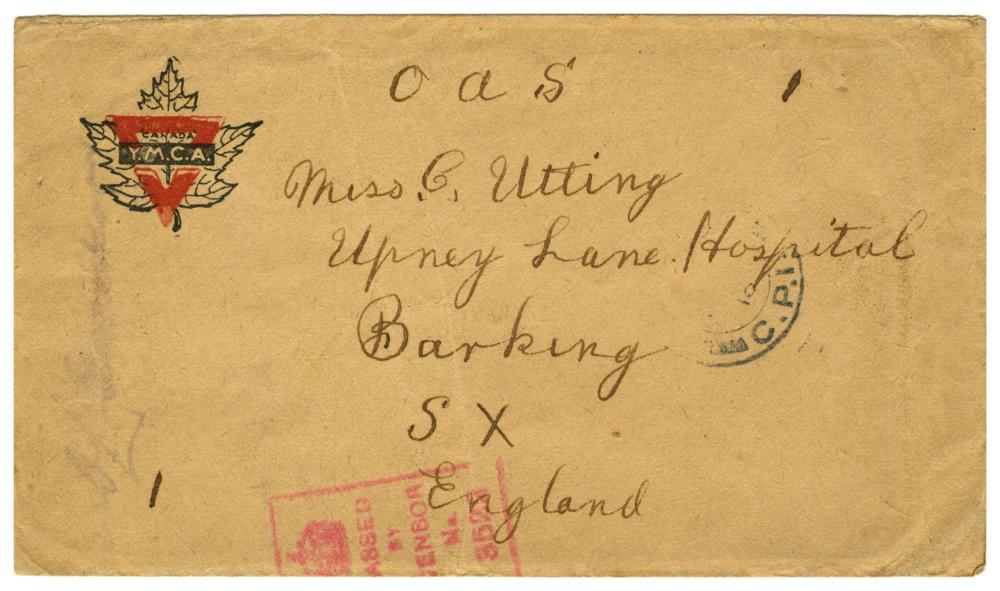 O a S 1
CANADA
Y.M.C.A.
Miss. C. Utting
Upney Lane. Hospital
Barking
S X
England
1
C.P.1
ASSED
BY
ENSOR
No.